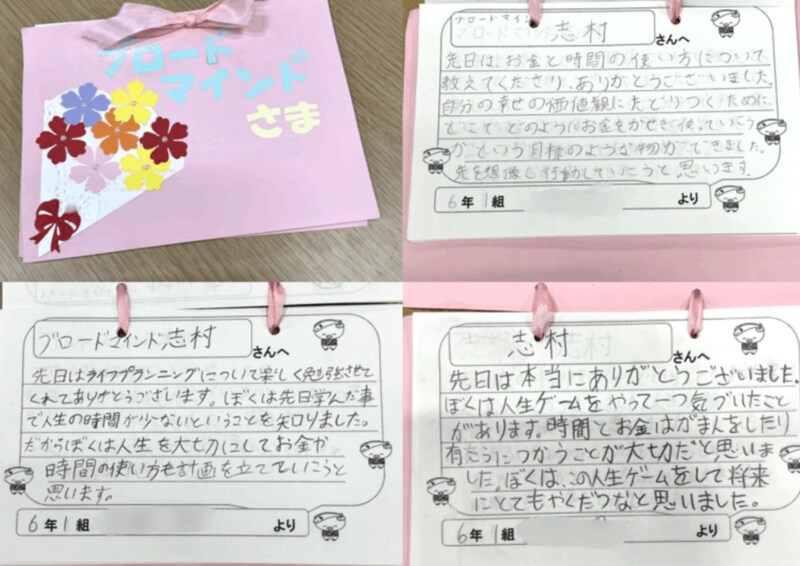 ブロード
マインド
さま
ブロードマインド
志村
さんへ
先日は、お金と時間の使い方について
教えてくださり、ありがとうございました。
自分の幸せの価値観にたどりつくために、
どこで、どのようにお金をかせぎ、使っていこう
かという目標のような物ができました。
先を想像し行動していこうと思います。
6年1組
より
ブロードマインド志村
さんへ
先日はライフプランニングについて楽しく勉強させて
くれてありがとうございます。ぼくは先日学んだ事
で人生の時間が少ないということを知りました。
だからぼくは人生を大切にしてお金や
時間の使い方も計画を立てていこうと
思います。
6年1組
より
志村
さんへ
先日は本当にありがとうございました。
ぼくは人生ゲームをやって一つ気づいたこと
があります。時間とお金はがまんをしたり
有こうにつかうことが大切だと思いま
した。ぼくは、この人生ゲームをして将来
にとてもやくだつなと思いました。
6年1組
より